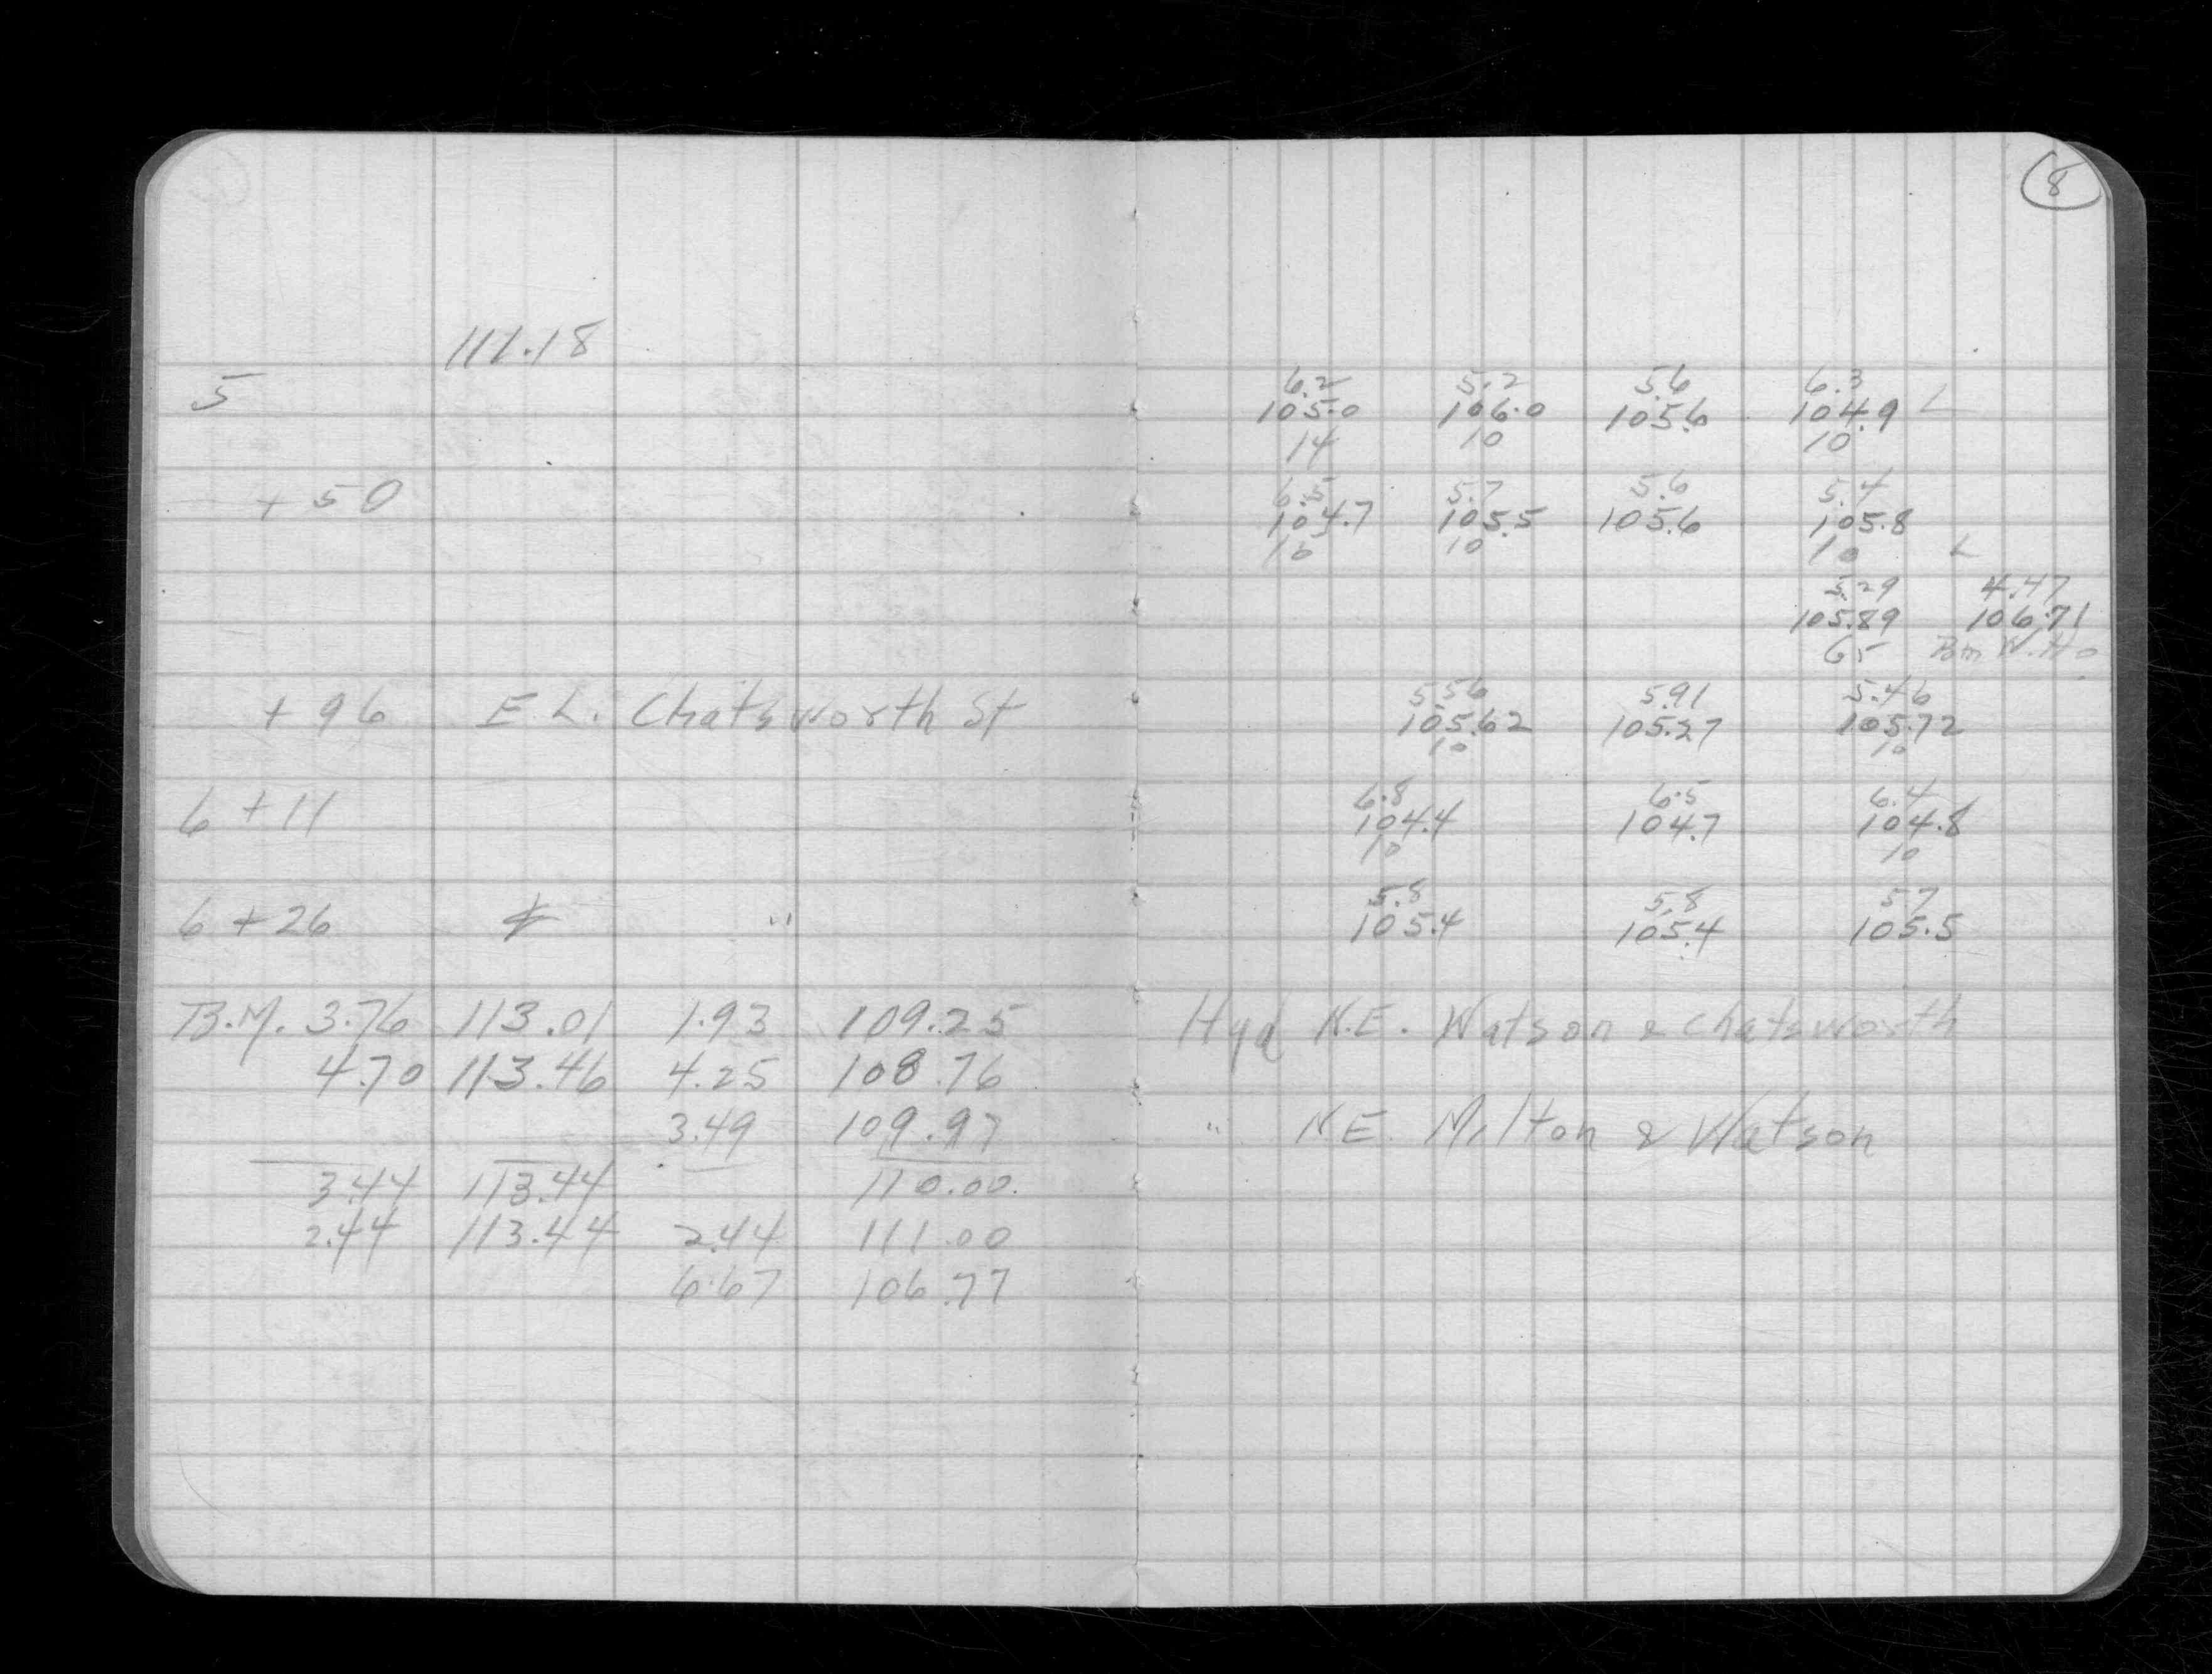 8
111.18
5
6.2 5.2 5.6 6.3
105.0 106.0 105.6 104.9 L
14 10 10
+ 50
6.5 5.7 5.6 5.4
104.7 105.5 105.6 105.8
10 10 L
5.29 4.47
105.89 106.71
65 Bm W. Ho
+ 96 E L. Chatsworth St
5.56 5.91 5.46
105.62 105.27 105.72
10 10
6 + 11
6.8 6.5 6.4
104.4 104.7 104.8
10 10
6 + 26 "
5.8 5.8 5.7
105.4 105.4 105.5
B.M. 3.76 113.01 1.93 109.25 Hyd N.E. Watson & Chatsworth
4.70 113.46 4.25 108.76
3.49 109.97 " N.E. Milton & Watson
3.44 113.44 110.00
2.44 113.44 2.44 111.00
6.67 106.77